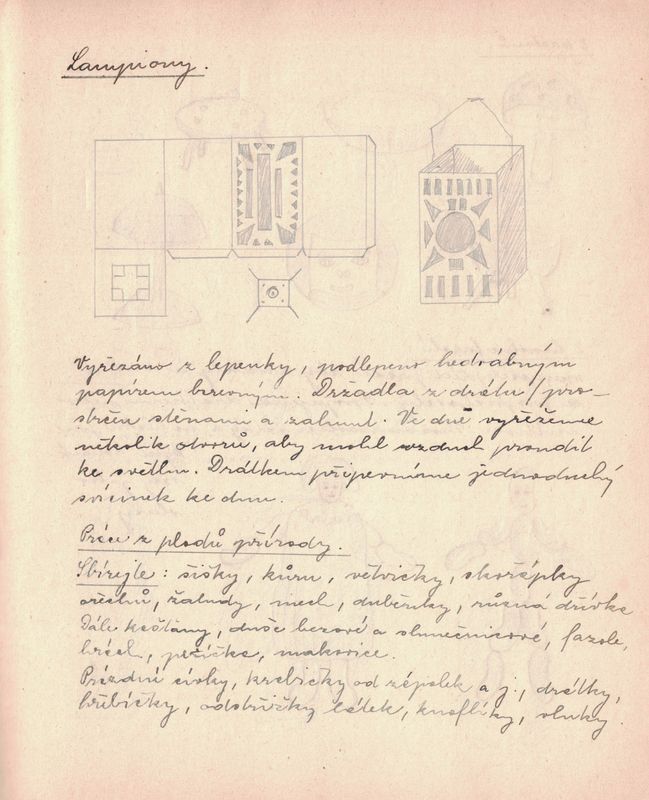 Lampiony.
Vyřezáno z lepenky, podlepeno hedvábným
papírem barevným. Držadla z drátu / pro-
strčen stěnami a zahnut. Ve dně vyřežeme
několik otvorů, aby mohl vzduch proudit
ke světlu. Drátkem připevníme jednoduchý
svícínek ke dnu.
Práce z plodů přírody.
Sbírejte: šišky, kůru, větvičky, skořápky
ořechů, žaludy, mech, duběnky, různá dřívka
Dále kaštany, duše bezové a slunečnicové, fazole,
hrách, peříčka, makovice.
Prázdné cívky, krabičky od zápalek a j., drátky,
hřebíčky, odstřižky látek, knoflíky,